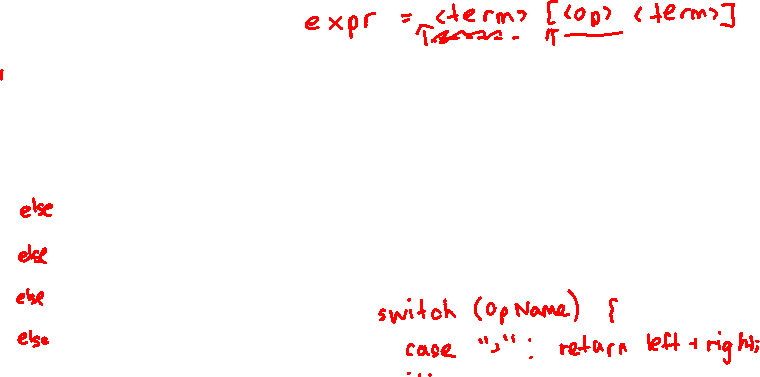 expr = <term> [<op> <term>]
else
else
else
else
switch (OpName) {
case " ": return left + right;
...